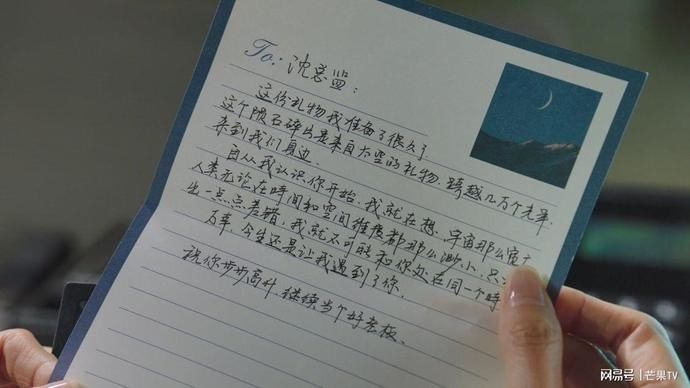 To: 沈总监:
这份礼物我准备了很久了
这个陨石碎片是来自太空的礼物,跨越几万个光年
来到我们身边.
自从我认识你开始,我就在想,宇宙那么宽
人类无论在时间和空间维度都那么渺小,只
出一点点差错,我就不可能和你处在同一个时
万幸,今生还是让我遇到了你.
祝你步步高升,继续当个好老板.
网易号|芒果TV